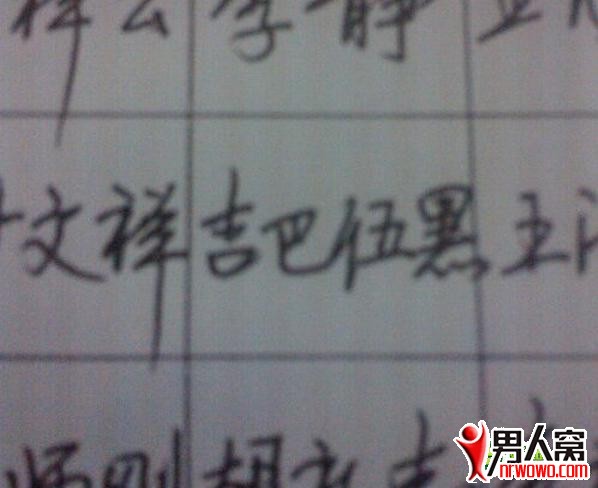 祥云 李静
文祥 吉巴伍黑 王
刚 胡
男人窝
nrwowo.com